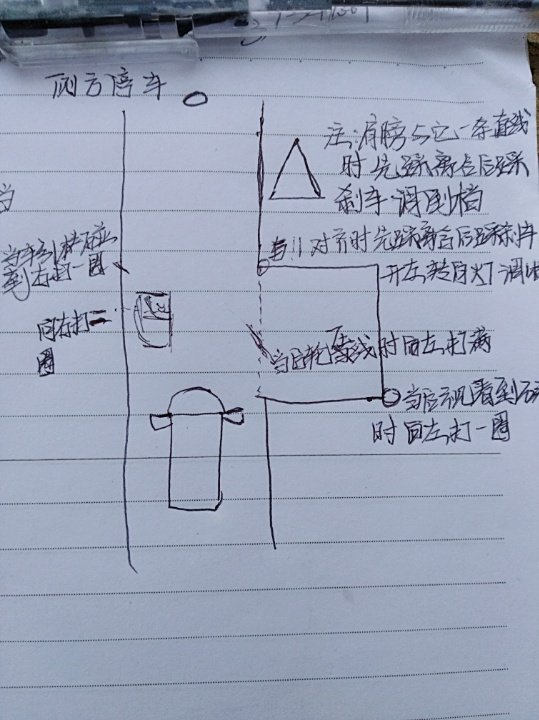 侧方停车
注:肩膀与它一条直线
时先踩离合后踩
刹车调到档
对齐时先踩离合后踩刹车
开左转向灯
到左打一圈
向右打二
圈
当后轮压线时向左打满
当后视看到
时向左打一圈